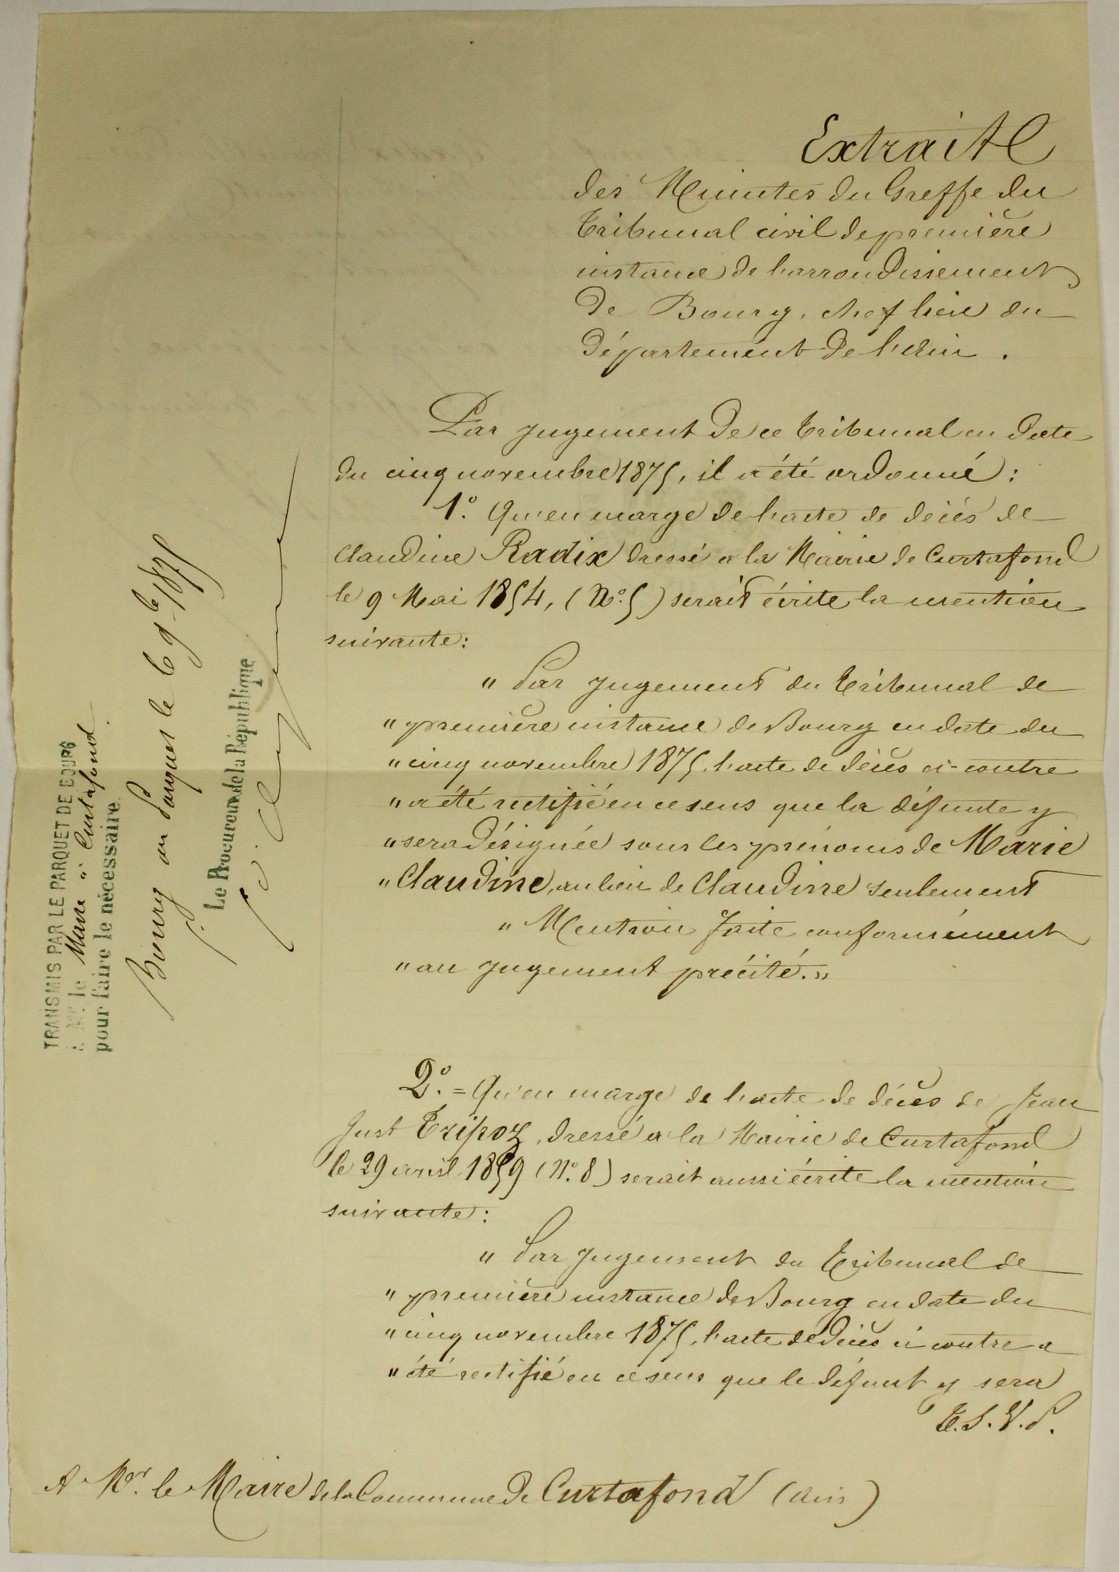 Extrait
des Minutes du Greffe du
Tribunal civil de première
instance de l'arrondissement
de Bourg, chef lieu du
département de l'Ain.
Par jugement de ce tribunal en date
du cinq novembre 1875, il a été ordonné :
1.° Qu'en marge de l'acte de décès de
Claudine Radix dressé à la Mairie de Curtafond
le 9 Mai 1854, (N.° 5) serait écrite la mention
suivante :
" Par jugement du tribunal de
" première instance de Bourg en date du
" cinq novembre 1875, l'acte de décès ci-contre
" a été rectifié en ce sens que la défunte y
" sera désignée sous les prénoms de Marie
" Claudine, au lieu de Claudine seulement
" Mention faite conformément
" au jugement précité. "
2.° = Qu'en marge de l'acte de décès de Jean
Just Tripoz, dressé à la Mairie de Curtafond
le 29 avril 1859 (N.° 8) serait aussi écrite la mention
suivante :
" Par jugement du tribunal de
" première instance de Bourg en date du
" cinq novembre 1875, l'acte de décès ci contre a
" été rectifié en ce sens que le défunt y sera
T.S.V.P.
A Mor. le Maire de la Commune de Curtafond (Ain)
TRANSMIS PAR LE PARQUET DE BOURG
à Mr. le Maire à Curtafond
pour faire le nécessaire.
Bourg au Parquet le 6 9bre 1875
Le Procureur de la République